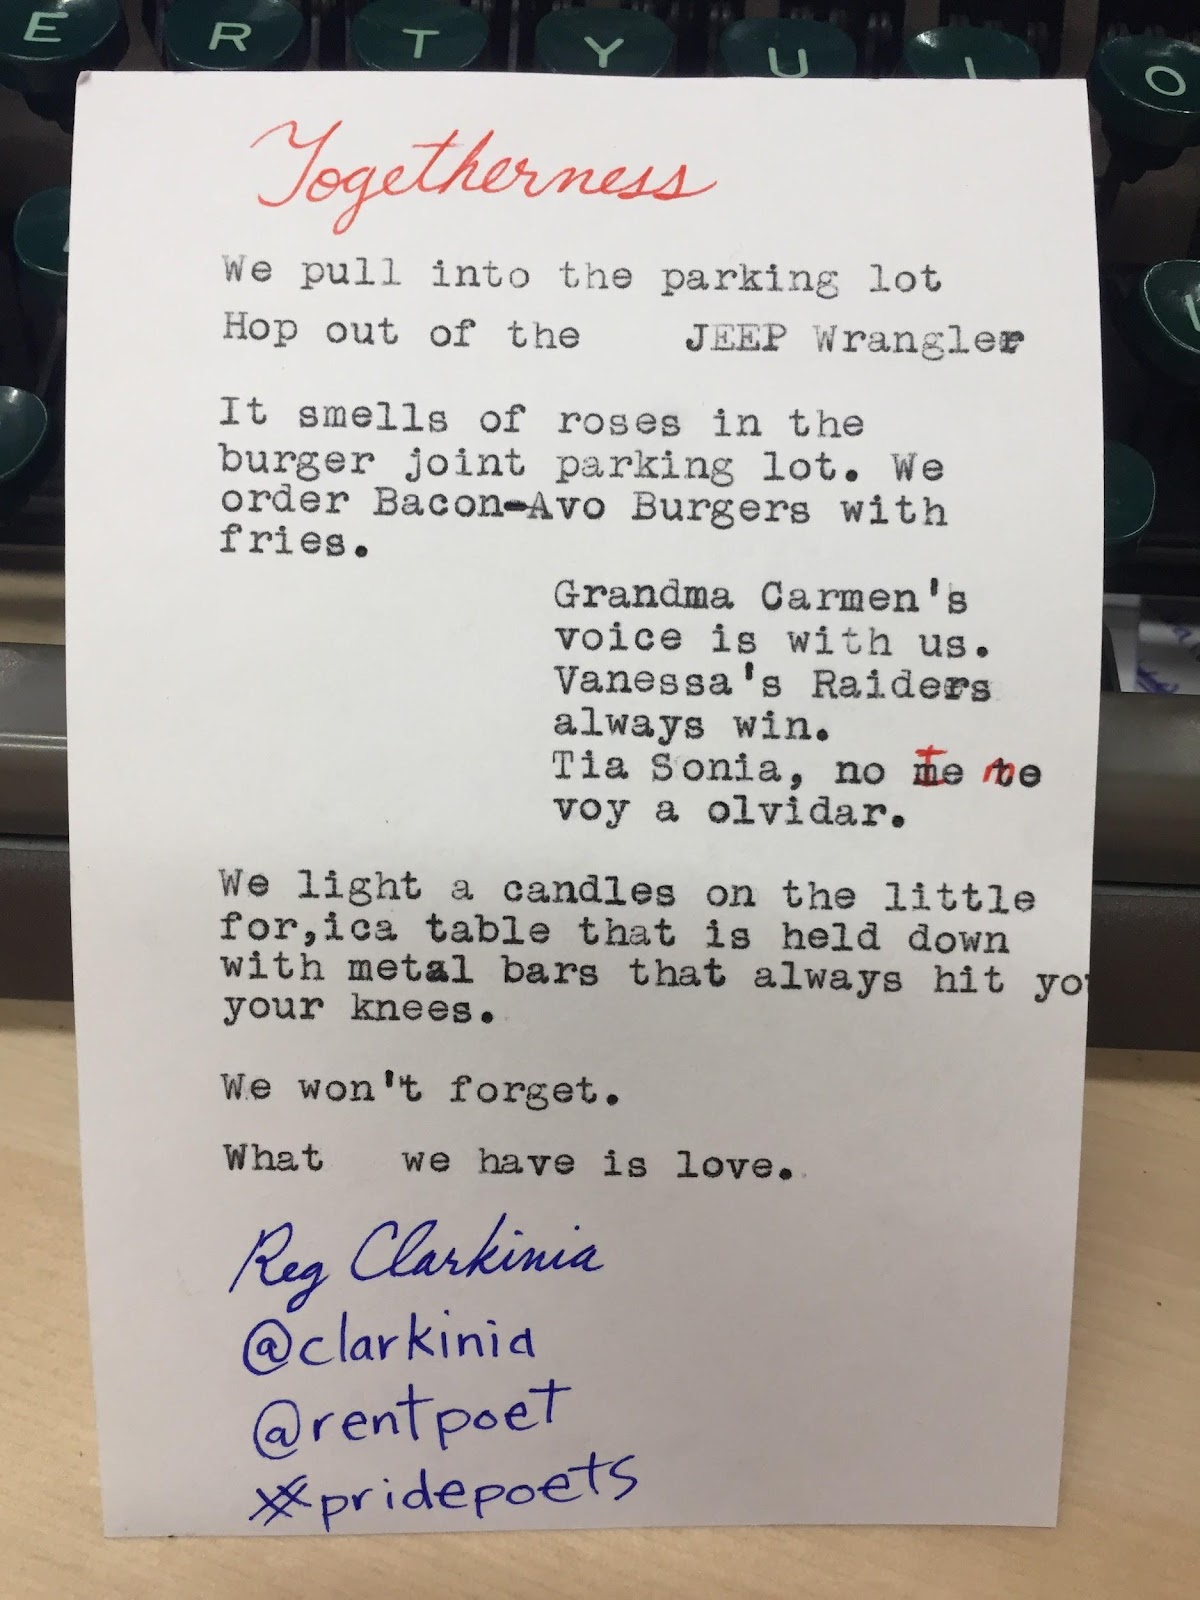 E R T Y U I O
Togetherness
We pull into the parking lot
Hop out of the JEEP Wrangler
It smells of roses in the
burger joint parking lot. We
order Bacon-Avo Burgers with
fries.
Grandma Carmen's
voice is with us.
Vanessa's Raiders
always win.
Tia Sonia, no te me
voy a olvidar.
We light a candles on the little
for,ica table that is held down
with metal bars that always hit you
your knees.
We won't forget.
What we have is love.
Reg Clarkinia
@clarkinia
@rentpoet
#pridepoets